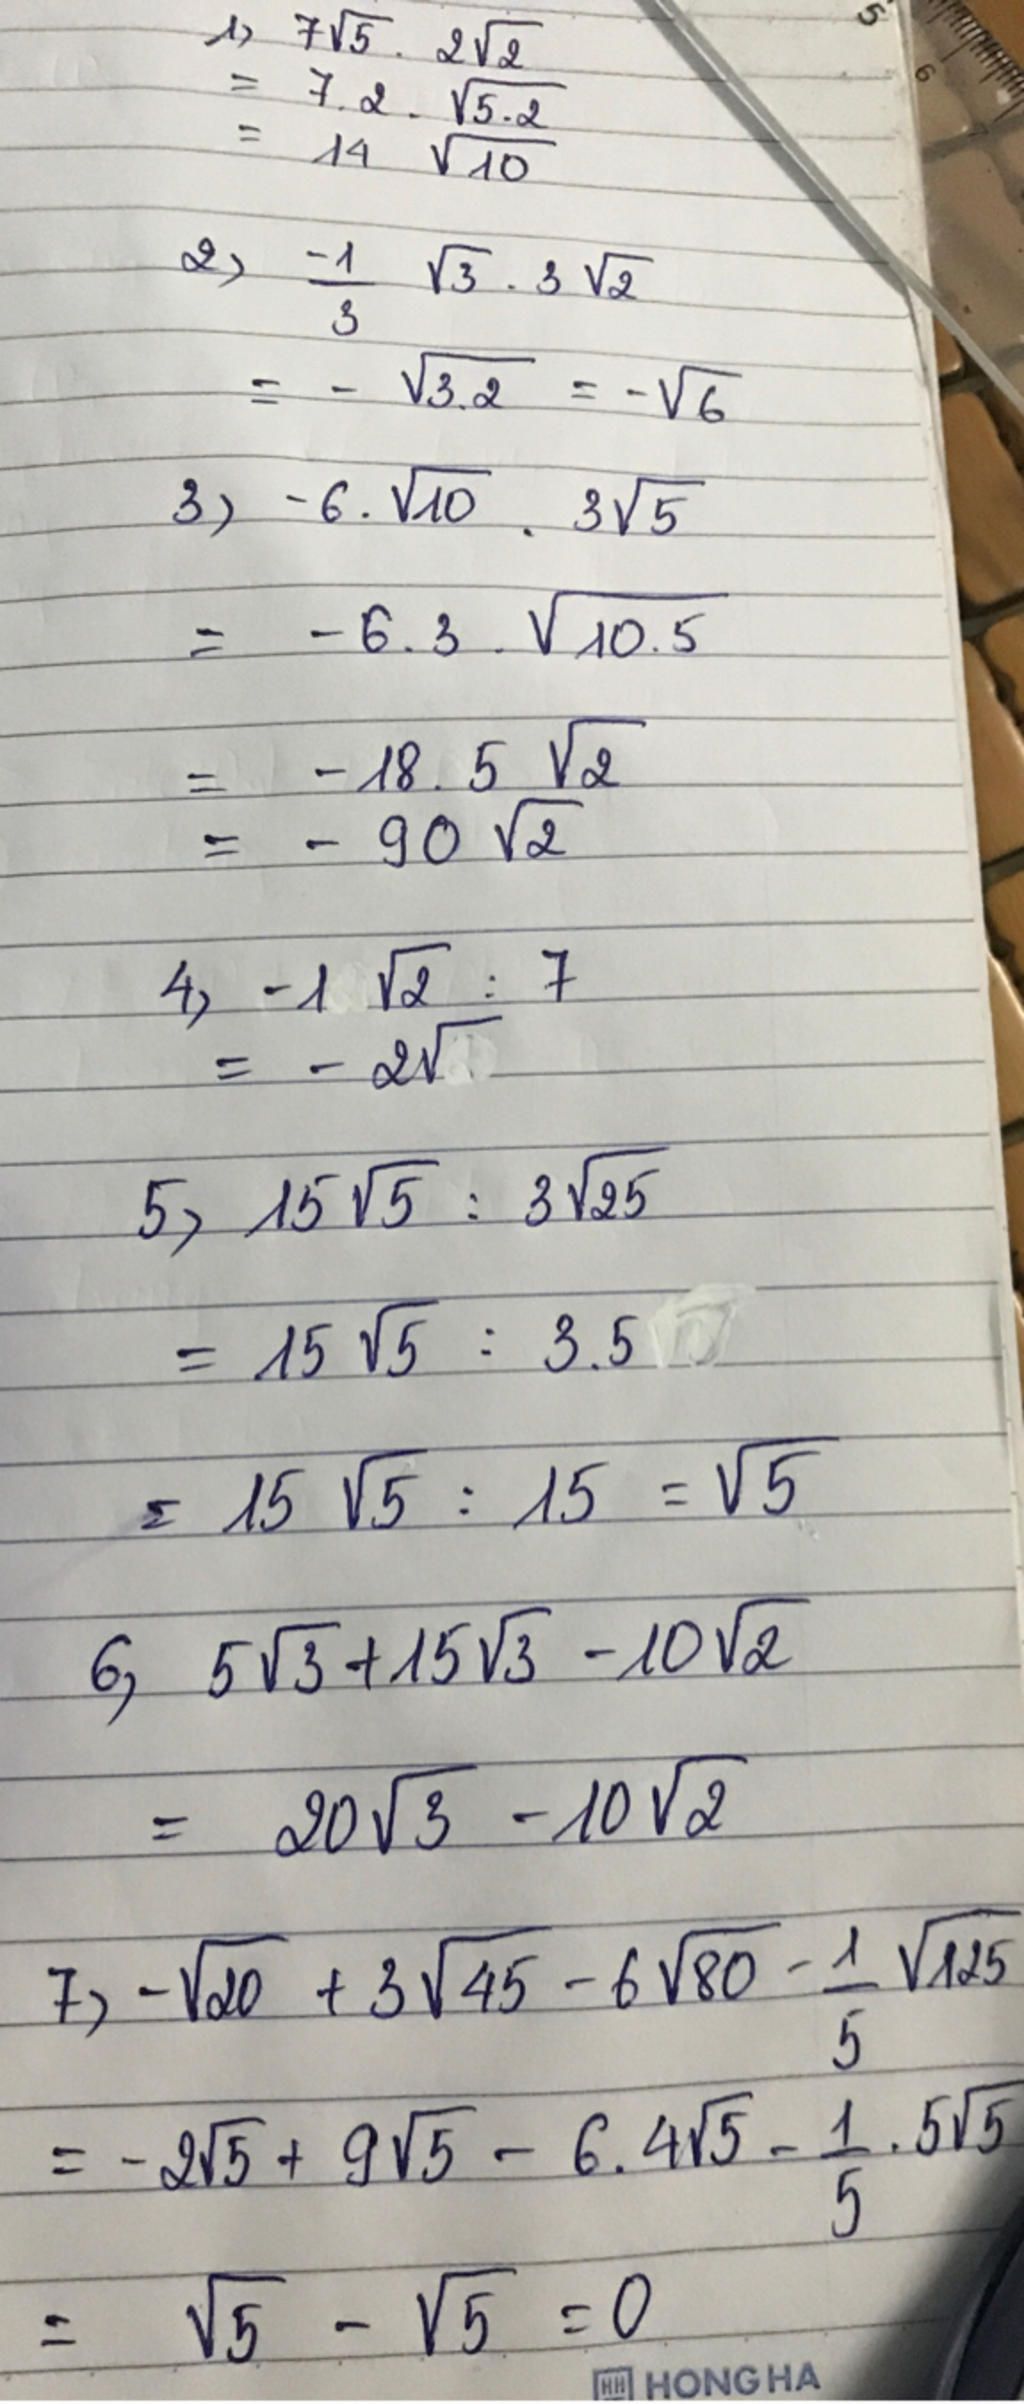 1, 7√5 . 2√2
= 7.2 . √5.2
= 14 √10
2, -1/3 √3 . 3√2
= - √3.2 = -√6
3, -6.√10 . 3√5
= -6.3.√10.5
= -18.5√2
= -90√2
4, -1 √2 : 7
= - 2√
5, 15√5 : 3√25
= 15√5 : 3.5
= 15√5 : 15 = √5
6, 5√3+15√3 -10√2
= 20√3 -10√2
7, -√20 + 3√45 - 6√80 - 1/5 √125
= -2√5 + 9√5 - 6.4√5 - 1/5 . 5√5
= √5 - √5 = 0
HH HONG HA
5
6